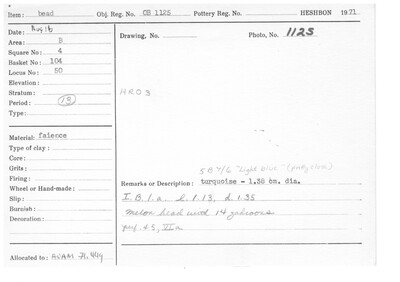 Item: bead Obj. Reg. No. OB 1125 Pottery Reg. No. HESHBON 1971
Date: Aug 16
Drawing, No. Photo, No. 1125
Area: B
Square No: 4
Basket No: 104
Locus No: 50
Elevation:
Stratum:
HRO3
Period: 13
Type:
Material: faience
Type of clay:
Core:
Grits:
5B 7/6 "light blue" (
Firing:
Remarks or Description: turquoise - 1.38 cm. dia.
Wheel or Hand-made:
Slip: I.B.1.a l. 1.13, d. 1.35
Burnish: melon bead with 14
Decoration: perf 4.5, VIa
Allocated to: 71.449